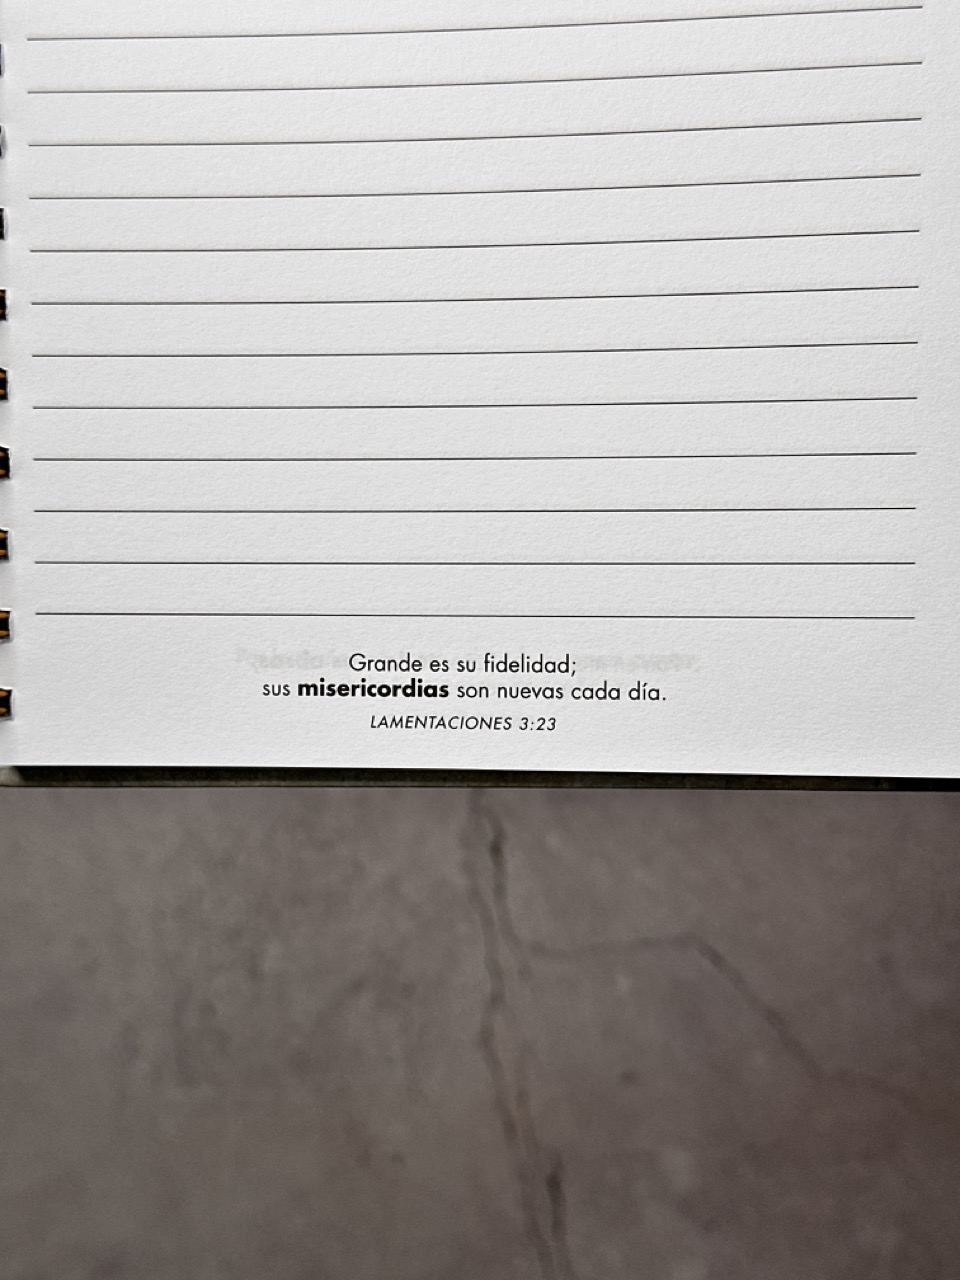 Grande es su fidelidad;
sus misericordias son nuevas cada día.
LAMENTACIONES 3:23